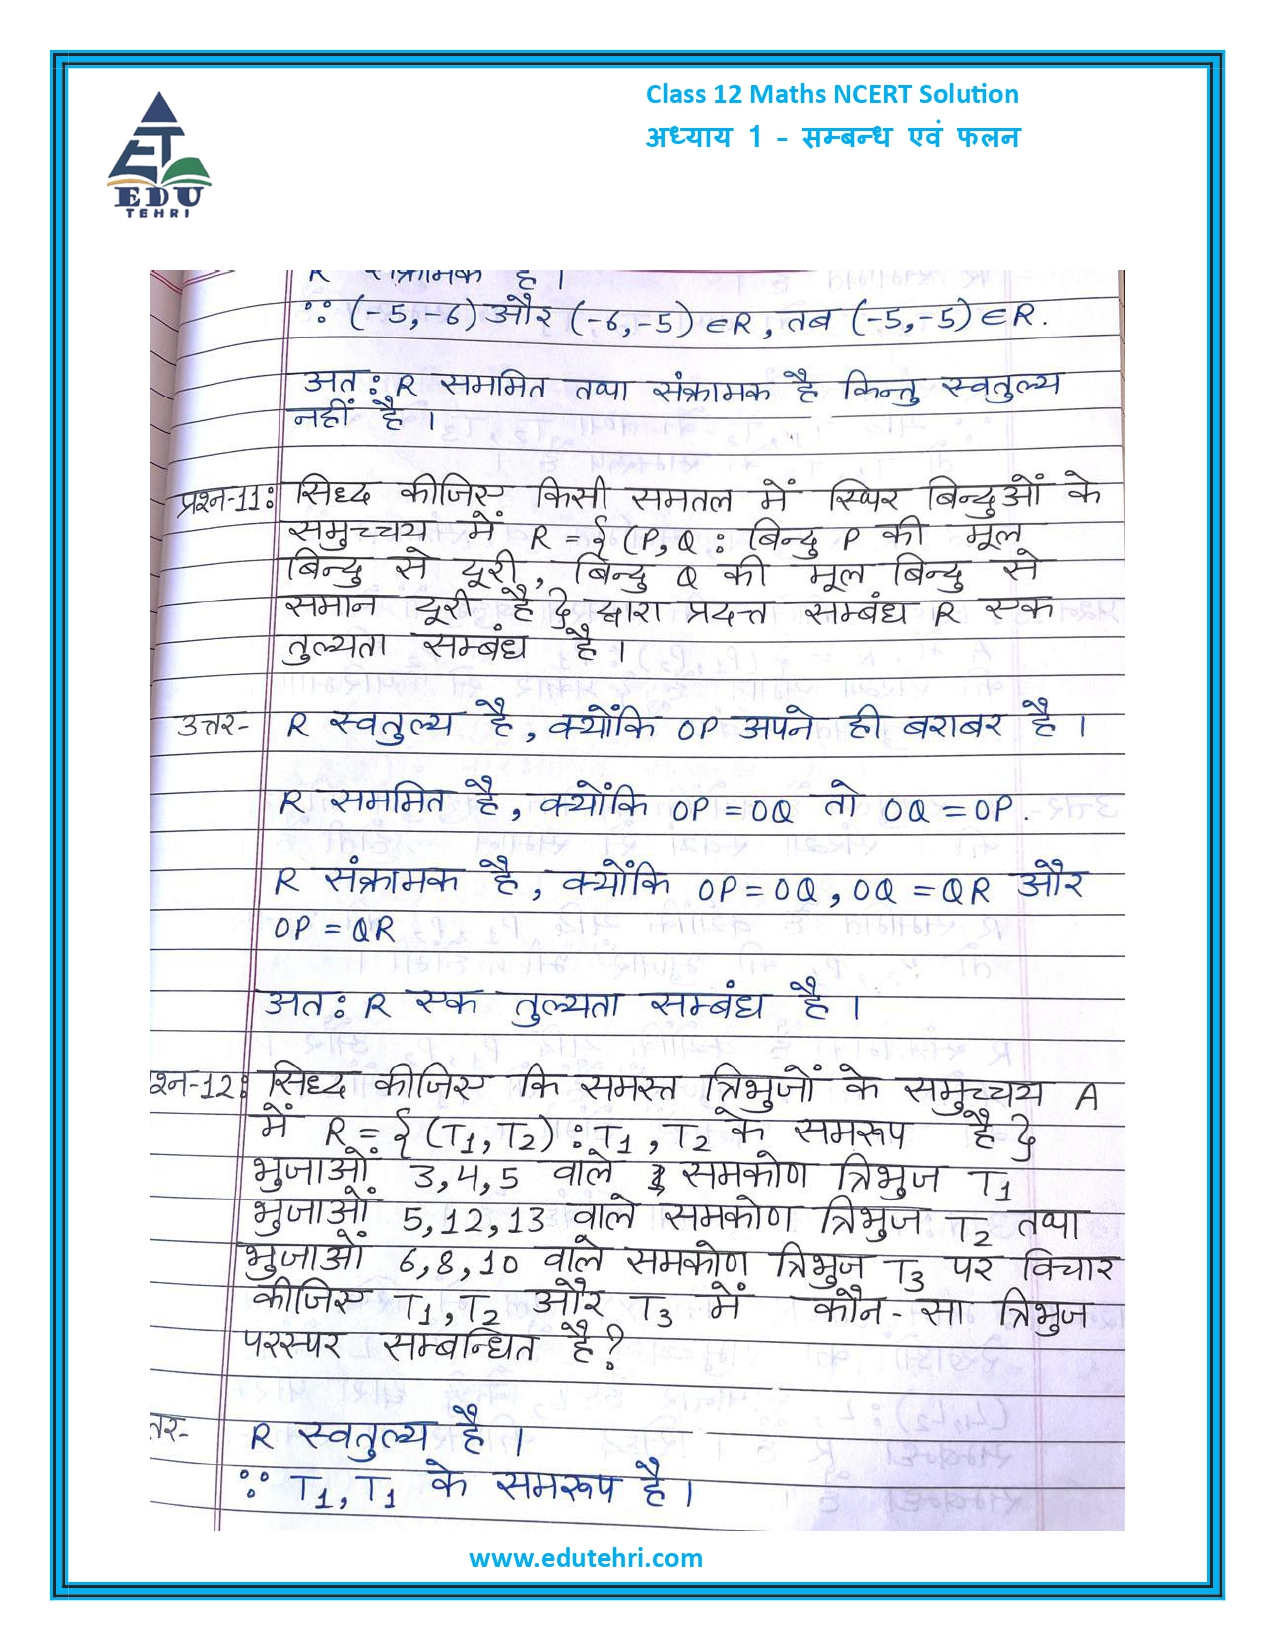 Class 12 Maths NCERT Solution
अध्याय 1 - सम्बन्ध एवं फलन
EDU
TEHRI
R संक्रामक है ।
∵ (-5,-6) और (-6,-5) ∈R, तब (-5,-5) ∈R.
अतः R सममित तथा संक्रामक है किन्तु स्वतुल्य
नहीं है ।
प्रश्न-11: सिध्द कीजिए किसी समतल में स्थिर बिन्दुओं के
समुच्चय में R = {(P,Q : बिन्दु P की मूल
बिन्दु से दूरी, बिन्दु Q की मूल बिन्दु से
समान दूरी है} द्वारा प्रदत्त सम्बंध R एक
तुल्यता सम्बंध है ।
उत्तर- R स्वतुल्य है, क्योंकि OP अपने ही बराबर है ।
R सममित है, क्योंकि OP = OQ तो OQ = OP.
R संक्रामक है, क्योंकि OP = OQ, OQ = QR और
OP = QR
अतः R एक तुल्यता सम्बंध है ।
श्न-12: सिध्द कीजिए कि समस्त त्रिभुजों के समुच्चय A
में R = {(T1,T2) : T1, T2 के समरूप है}
भुजाओं 3,4,5 वाले समकोण त्रिभुज T1
भुजाओं 5,12,13 वाले समकोण त्रिभुज T2 तथा
भुजाओं 6,8,10 वाले समकोण त्रिभुज T3 पर विचार
कीजिए T1,T2 और T3 में कौन-सा त्रिभुज
परस्पर सम्बन्धित है?
तर- R स्वतुल्य है ।
∵ T1, T1 के समरूप है ।
www.edutehri.com